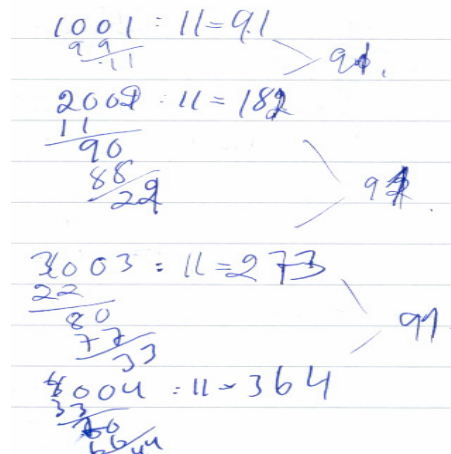 1001 : 11 = 91
99
11
91.
2002 : 11 = 182
11
90
88
22
91
3003 : 11 = 273
22
80
77
33
91
4004 : 11 = 364
33
66
44